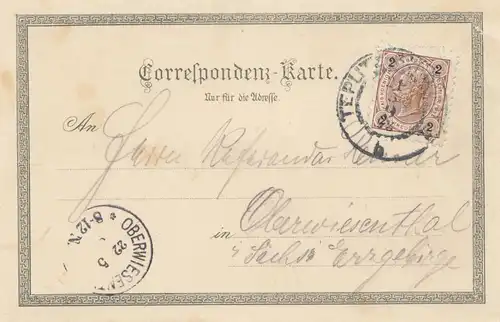 Correspondenz-Karte.
Nur für die Adresse.
An
Herrn Referendar
in Oberwiesenthal
Sächs. Erzgebirge
TEPLITZ
2 2
2 2
OBERWIESEN
22 5
* 8-12 N.